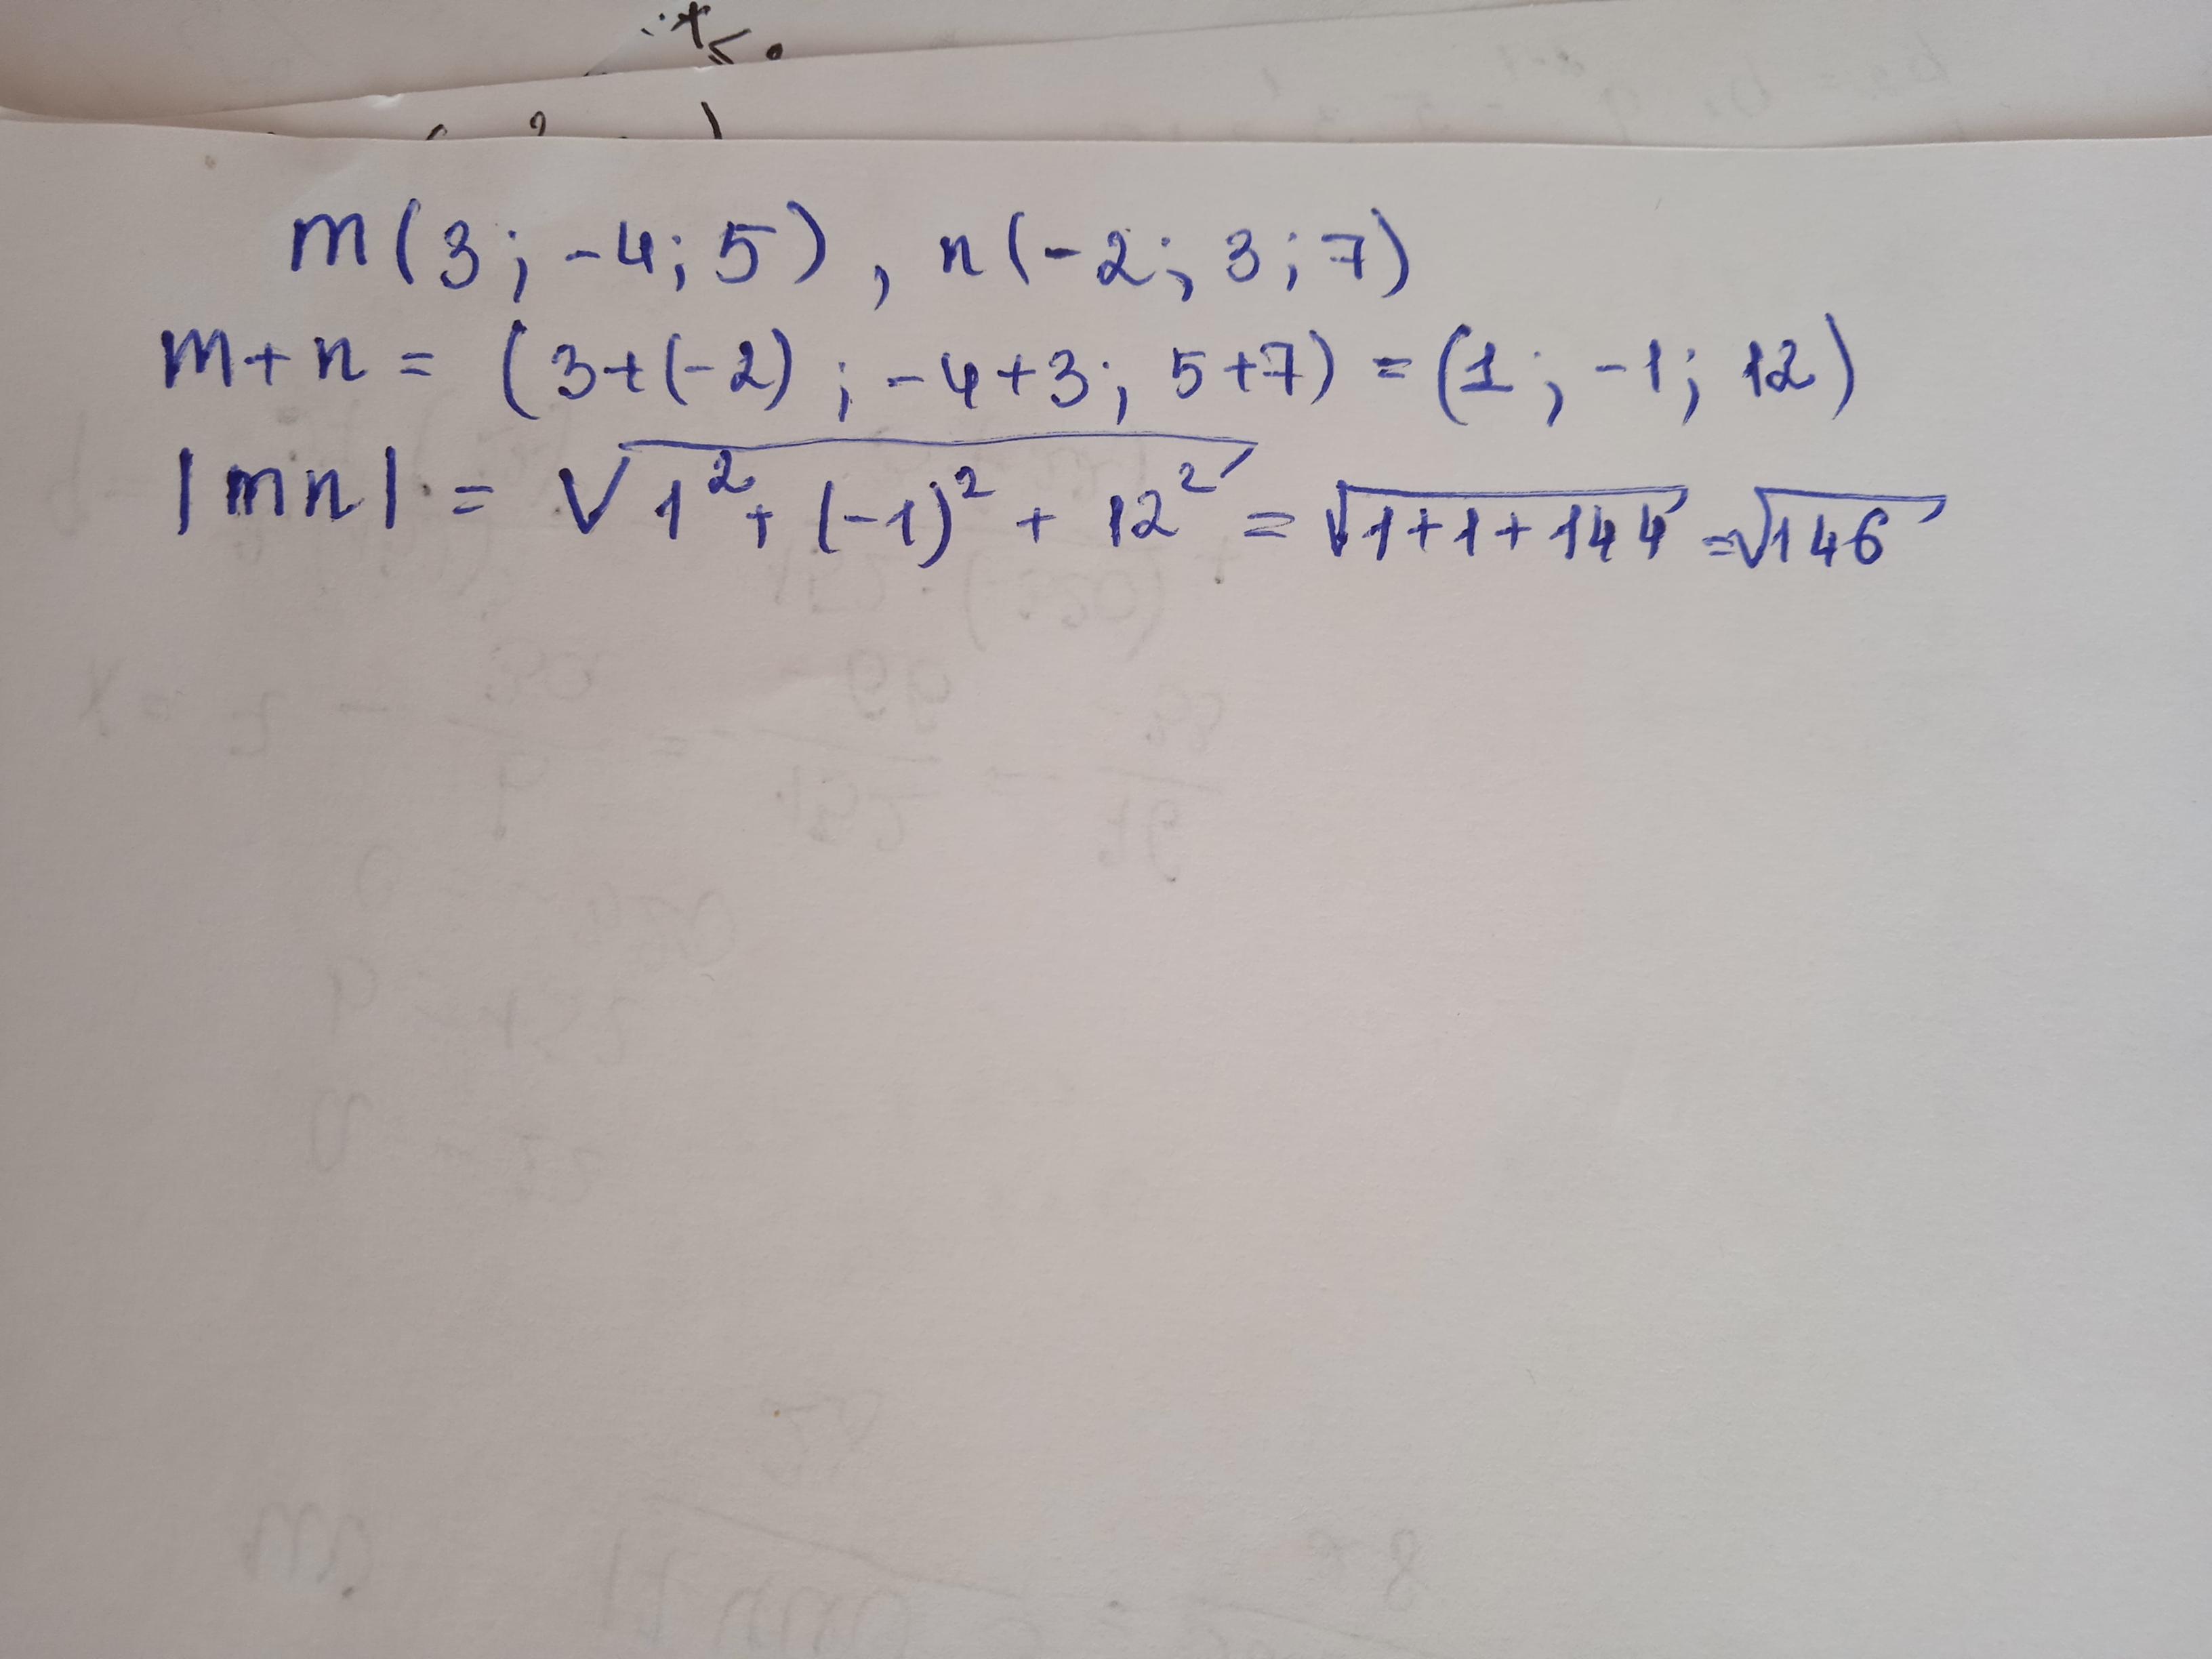 m(3; -4; 5), n(-2; 3; 7)
m+n = (3+(-2); -4+3; 5+7) = (1; -1; 12)
|mn| = √1² + (-1)² + 12² = √1+1+144 = √146